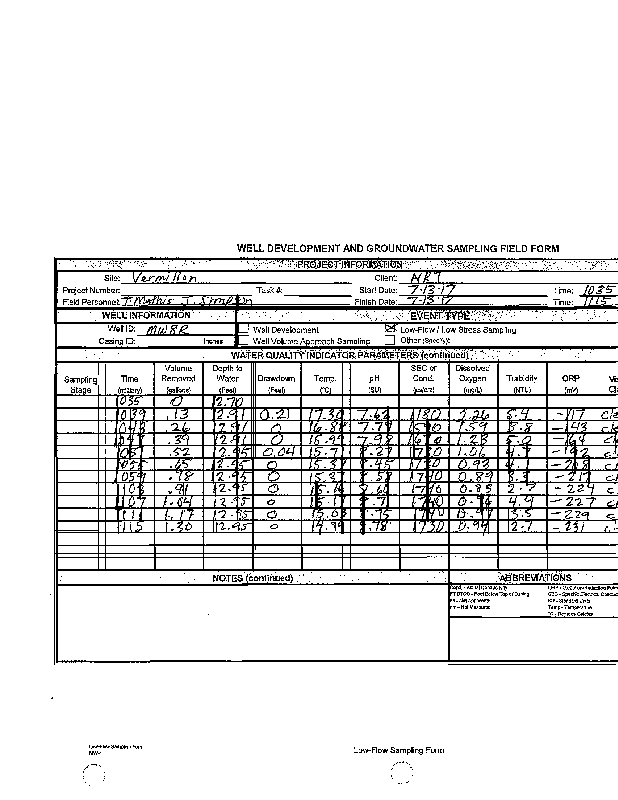 WELL DEVELOPMENT AND GROUNDWATER SAMPLING FIELD FORM
PROJECT INFORMATION
Site: Vermilion Client: NRT
Project Number: Task #: Start Date: 7-13-17 Time: 1035
Field Personnel: T. Mathis J. Simpson Finish Date: 7-13-17 Time: 1115
WELL INFORMATION EVENT TYPE
Well ID: MW8R Well Development Low-Flow / Low Stress Sampling
Casing ID: inches Well Volume Approach Sampling Other (Specify):
WATER QUALITY INDICATOR PARAMETERS (continued)
Sampling Stage Time (military) Volume Removed (gallons) Depth to Water (Feet) Drawdown (Feet) Temp. (°C) pH (SU) SEC or Cond. Dissolved Oxygen (mg/L) Turbidity (NTU) ORP (mV)
1035 0 12.70
1039 .13 12.91 0.21 17.30 7.62 1180 3.26 5.4 -117
1043 .26 12.91 0 16.84 7.79 1590 1.59 5.8 -143
1047 .39 12.91 0 15.99 7.98 1670 1.23 5.0 -164
1051 .52 12.95 0.04 15.71 8.27 1730 1.06 4.7 -192
1055 .65 12.95 0 15.37 8.45 1730 0.93 4.1 -208
1059 .78 12.95 0 15.27 8.58 1740 0.89 3.3 -217
1103 .91 12.95 0 15.14 8.65 1740 0.85 2.7 -224
1107 1.04 12.95 0 15.17 8.71 1740 0.96 4.9 -227
1111 1.17 12.95 0 15.03 8.75 1740 0.97 3.5 -229
1115 1.30 12.95 0 14.99 8.78 1730 0.94 2.7 -231
NOTES (continued) ABBREVIATIONS
FT BTOC - Feet Below Top of Casing
nm - Not Measured Temp - Temperature
°C - Degrees Celcius
Low-Flow Sampling Form Low-Flow Sampling Form